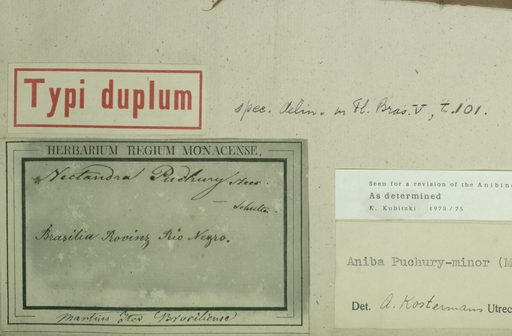 Typi duplum
spec. delin. in Fl. Bras. V, t. 101.
HERBARIUM REGIUM MONACENSE.
Nectandra Puchury Nees
Brasilia. Provinz Rio Negro.
Martius Iter Brasiliense
Seen for a revision of the Anibin
As determined
K. Kubitzki 1970/75
Aniba Puchury-minor (M
Det. A. Kostermans Utrec